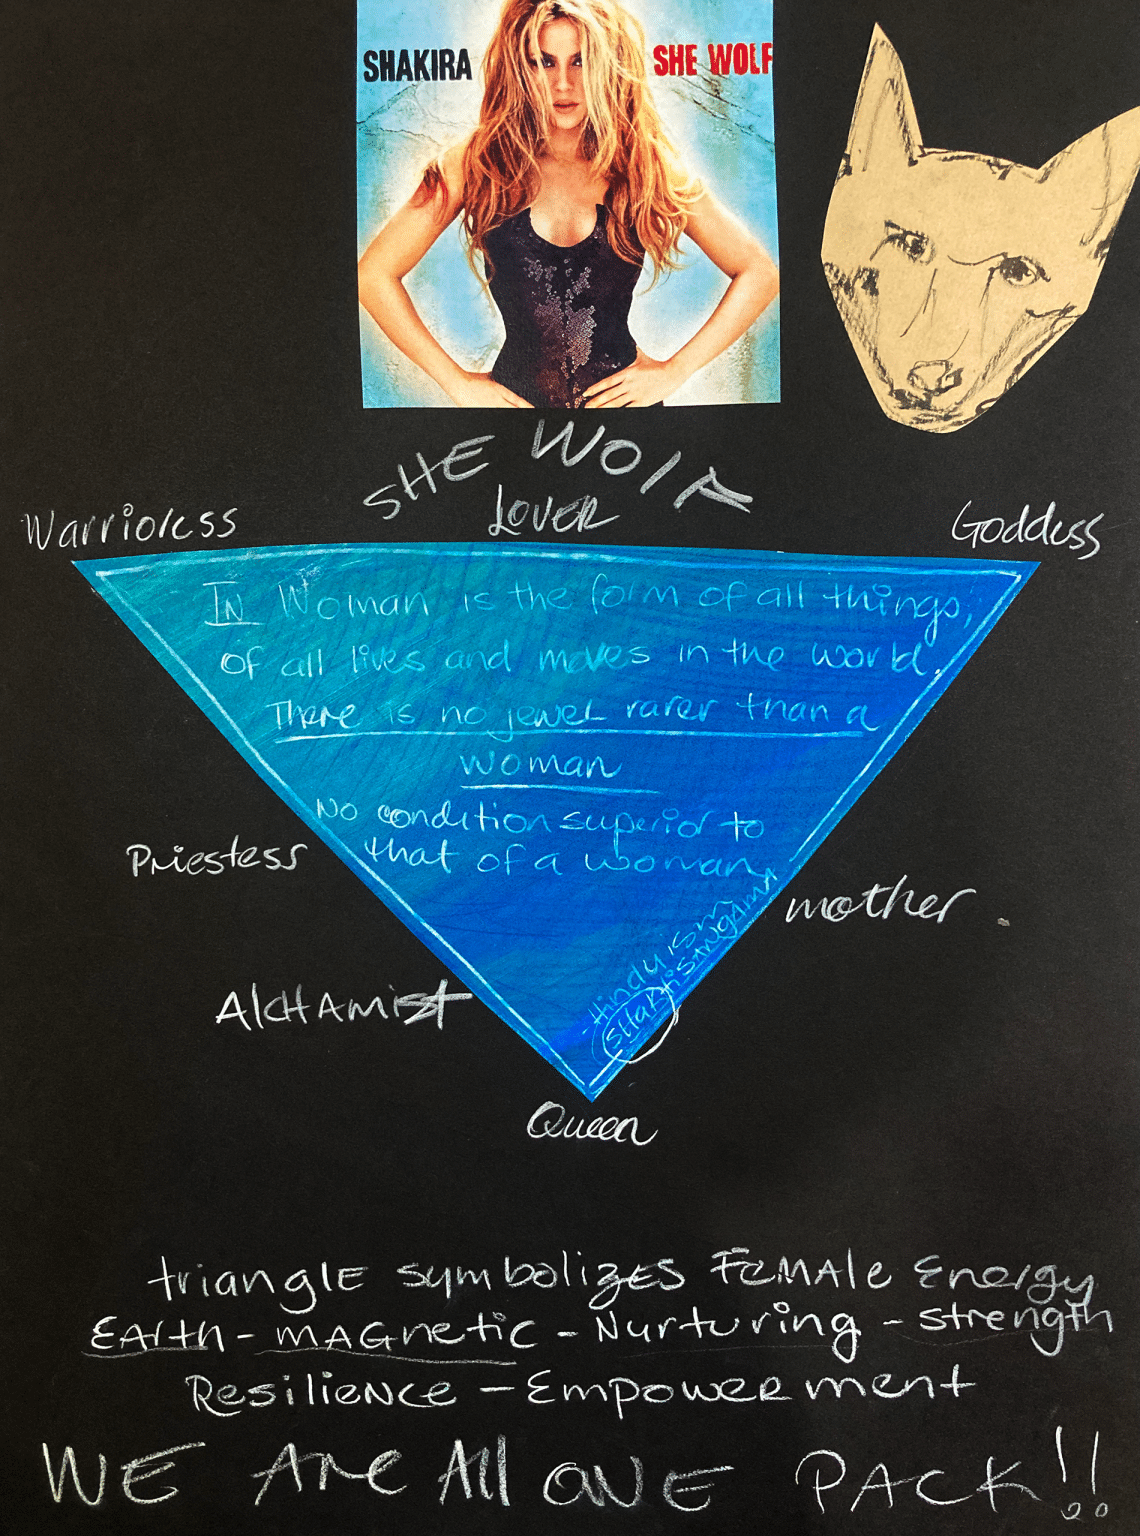 SHAKIRA SHE WOLF
SHE WOlF
Warrioress
LOVER
Goddess
IN Woman is the form of all things,
of all lives and moves in the world.
There is no jewel rarer than a
woman
No condition superior to
that of a woman
-Hinduism
SHAKTISANGAMA
Priestess
mother.
AlCHAMisT
Queen
trianglE symbolizES FEMAlE Energy
EArth - mAGnetic - Nurturing - strength
ResilieNce - EmpowERment
WE ARE All ONE PACK!!